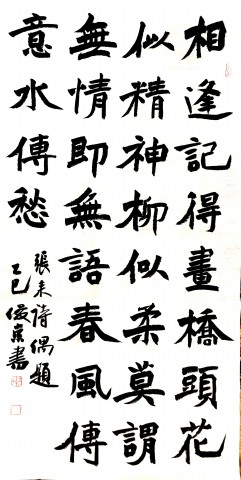 相逢記得畫橋頭花
似精神柳似柔莫謂
無情即無語春風傳
意水傳愁
張耒詩偶題
乙巳俊京書